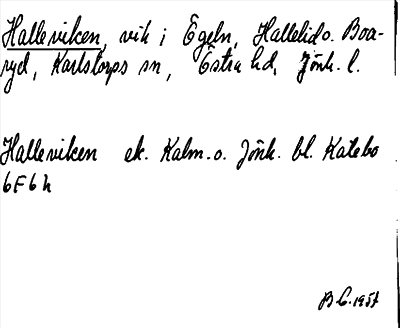 Halleviken, vik i Egeln, Hallelid o. Boa-
ryd, Karlstorps sn, Östra hd, Jönk. l.
Halleviken ek. Kalm. o. Jönk. bl. Katebo
6F6h
B C. 1957